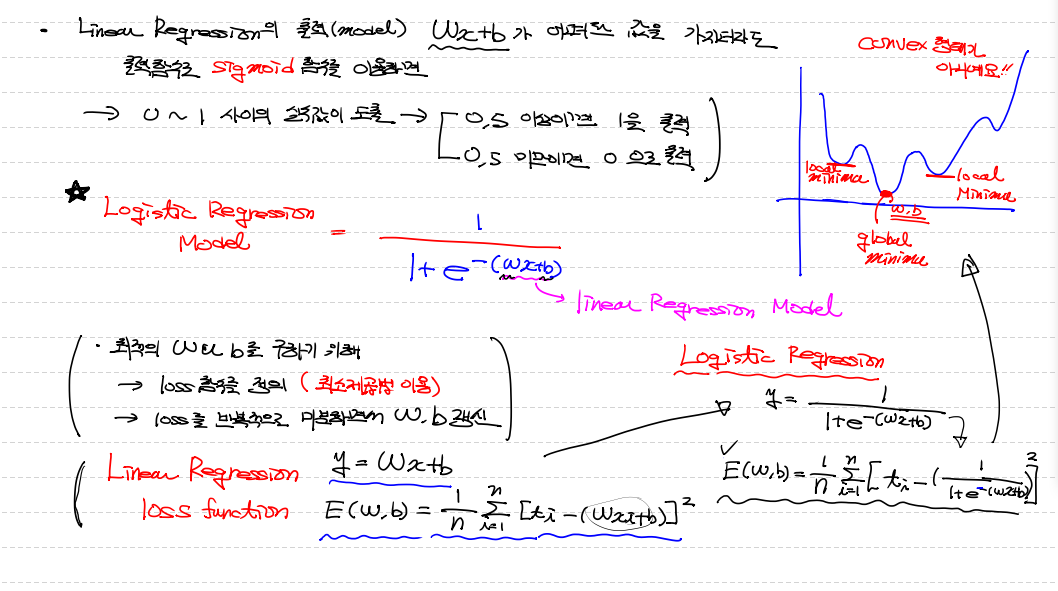 · Linear Regression의 출력(model) Wx+b가 어떠한 값을 가지더라도
출력함수로 sigmoid 함수를 이용하면
→ 0 ~ 1 사이의 실수값이 도출 → [ 0,5 이상이면 1을 출력
0,5 미만이면 0 으로 출력
convex 형태가
아니에요!!
local
minima
local
Minima
w,b
global
minima
★ Logistic Regression
Model
= 1 / 1+e^-(wx+b)
→ linear Regression Model
· 최적의 W와 b를 구하기 위해
→ loss 함수를 정의 (최소제곱법 이용)
→ loss를 반복적으로 미분하면서 W, b 갱신
Linear Regression
loss function
y = Wx+b
E(w,b) = 1/n Σ_{i=1}^{n} [ti-(Wxi+b)]²
Logistic Regression
y = 1 / 1+e^-(wx+b)
✓ E(w,b) = 1/n Σ_{i=1}^{n} [ti-(1 / 1+e^-(wx+b))]²